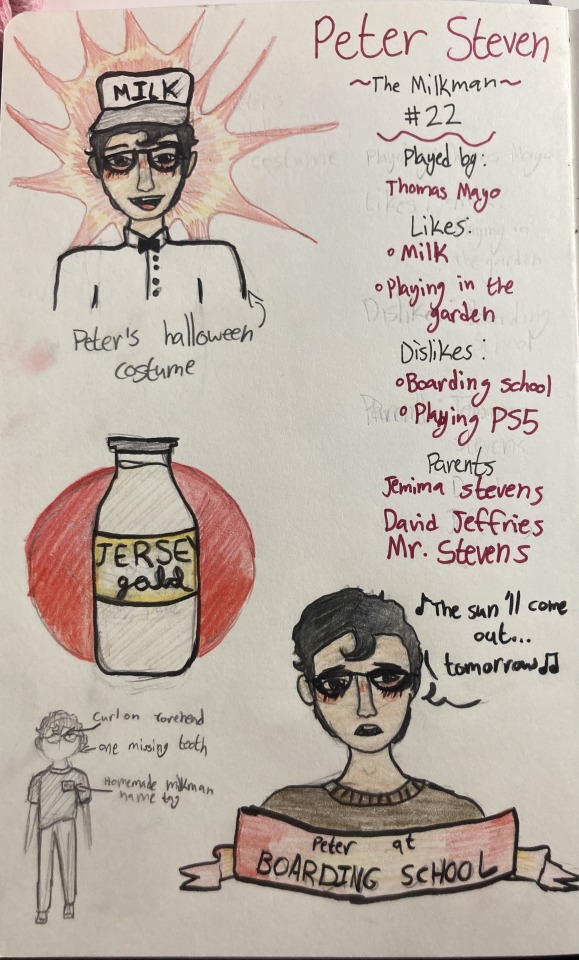 Peter Steven
~The Milkman~
#22
Played by:
Thomas Mayo
Likes:
Milk
Playing in the
garden
Dislikes:
Boarding school
Playing PS5
Parents
Jemima stevens
David Jeffries
Mr. Stevens
MILK
Peter's halloween
costume
JERSEY
gold
♪The sun'll come
out...
tomorrow♫
Curl on forehead
one missing tooth
Homemade milkman
name tag
Peter at
BOARDING SCHOOL